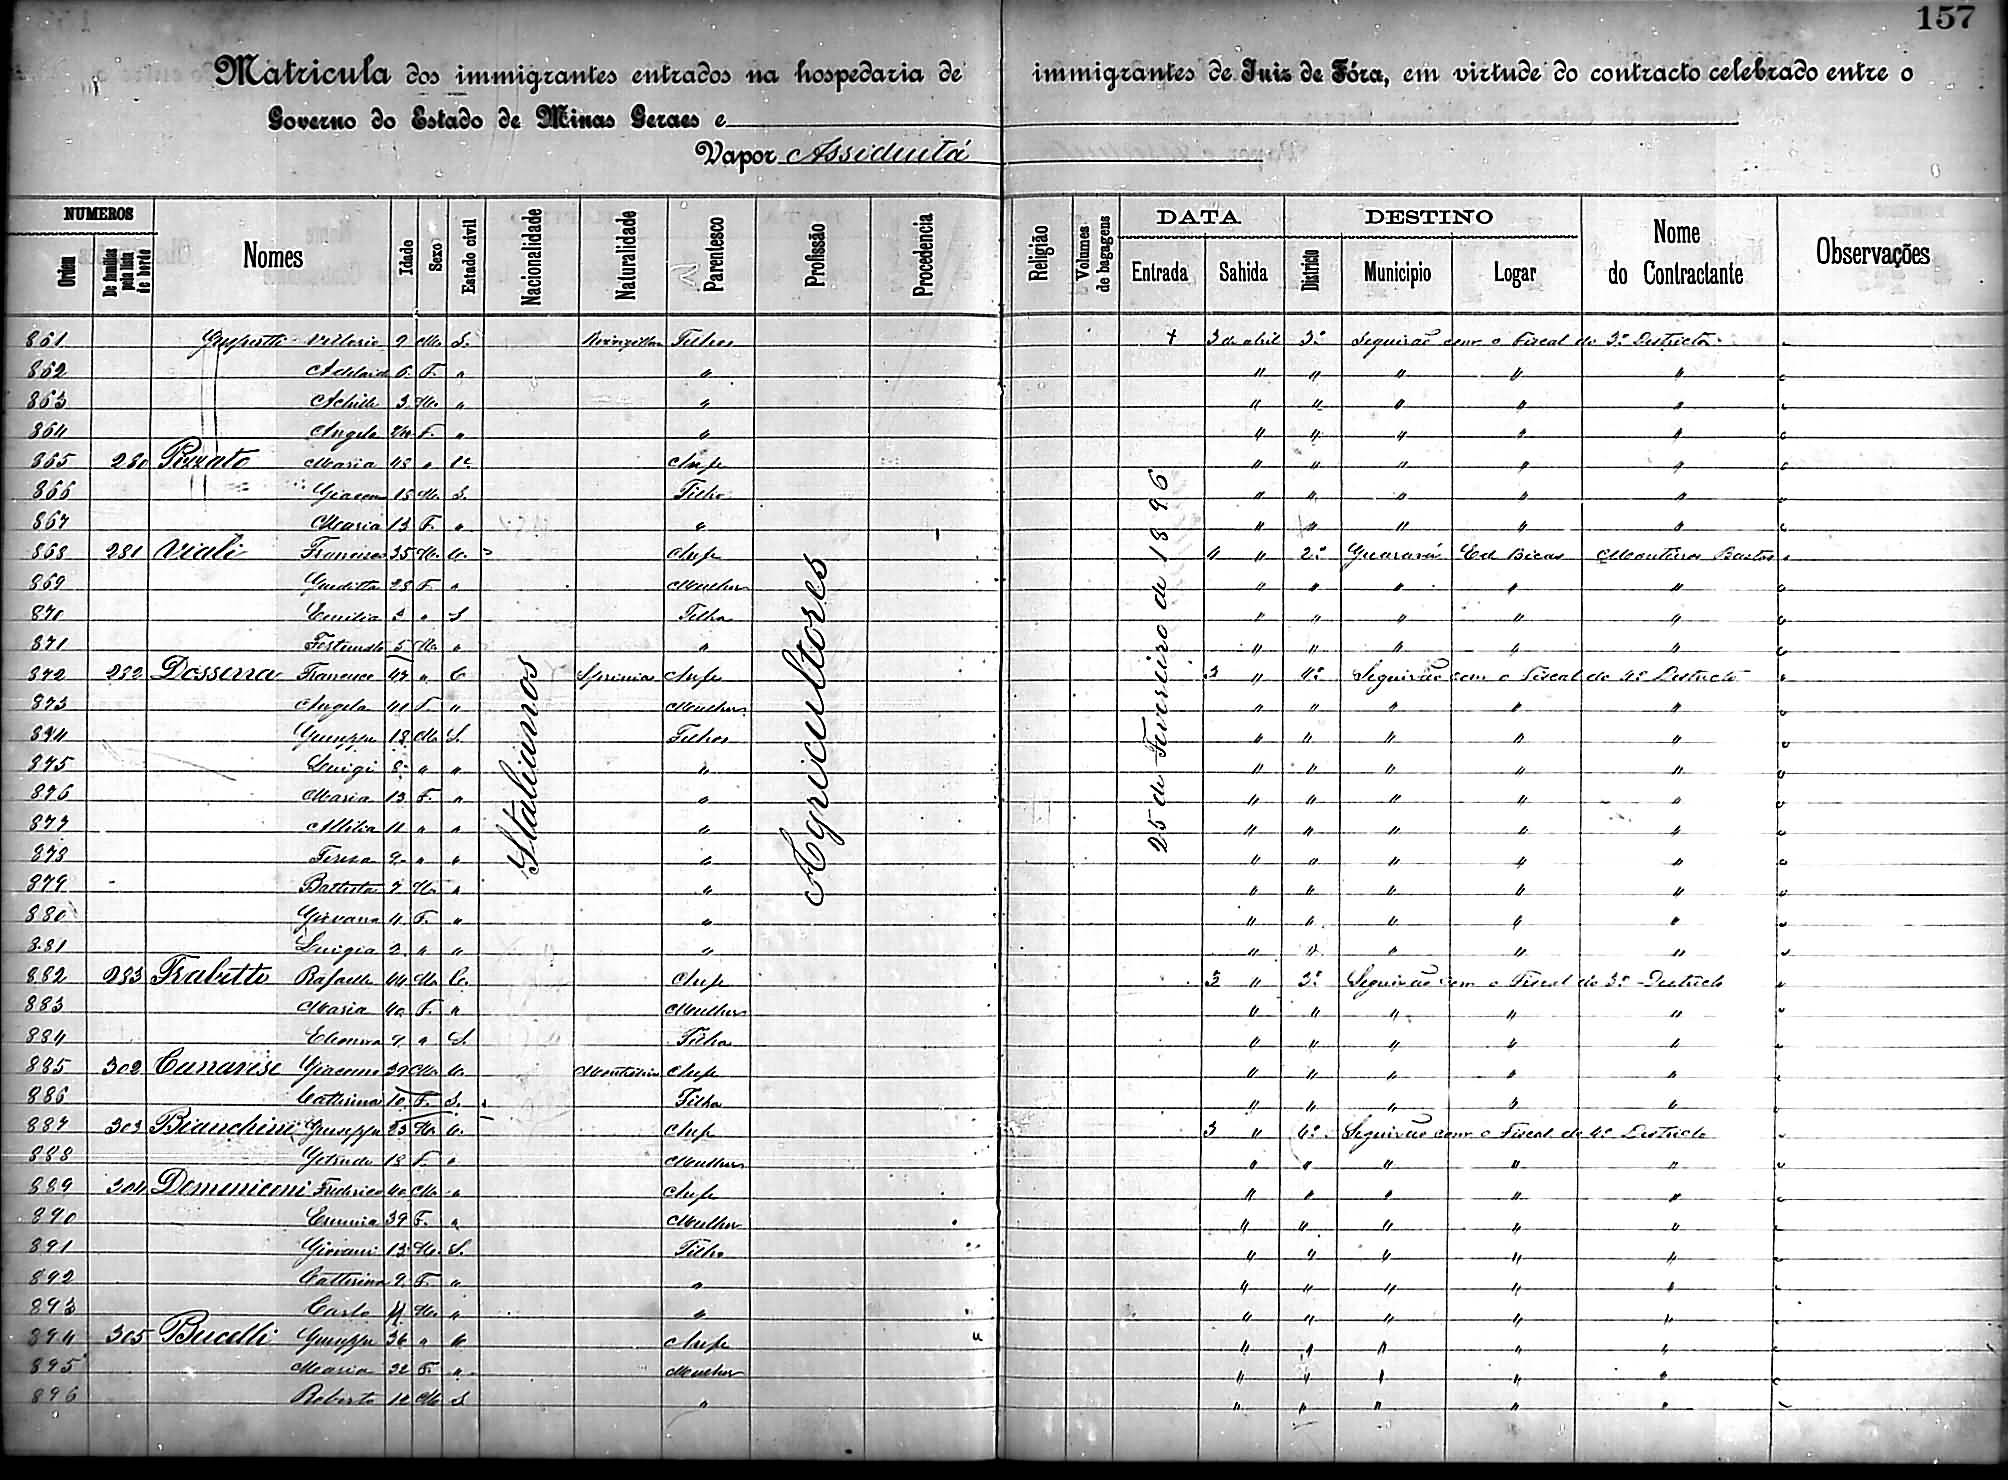 157
Matricula dos immigrantes entrados na hospedaria de immigrantes de Juiz de Fóra, em virtude do contracto celebrado entre o
Governo do Estado de Minas Geraes e
Vapor Assiduitá
NUMEROS DATA DESTINO
Ordem De familias pela lista de bordo Nomes Idade Sexo Estado civil Nacionalidade Naturalidade Parentesco Profissão Procedencia Religião Volumes de bagagens Entrada Sahida Districto Municipio Logar Nome do Contractante Observações
Italianos
Agricultores
25 de Fevereiro de 1896
861 Vittorio 9 M. S. Filhos 3 de abril 3º Seguirão com o Fiscal do 3º Districto
862 6 F. " " " " " " "
863 Achille 3 M. " " " " " " "
864 Angela 24 F. " " " " " " "
865 280 Pizzato Maria 48 " Chefe " " " " "
866 Giacom 15 M. S. Filho " " " " "
867 Maria 13 F. " " " " " " "
868 281 Viali Francisco 35 M. C. Chefe " " 2º Guarará Est Bicas Monteiro Bastos
869 Giuditta 28 F. " Mulher " " " " "
870 Emilia 3 " S Filha " " " " "
871 5 M. " " " " " " "
872 282 Dossena Francesco 47 " C Chefe 3 " 4º Seguirão com o Fiscal do 4º Districto
873 Angela 41 F. " Mulher " " " " "
874 Giuseppe 18 M S. Filhos " " " " "
875 Luigi 8 " " " " " " " "
876 Maria 13 F. " " " " " " "
877 Attilia 11 " " " " " " " "
878 Teresa 9 " " " " " " " "
879 Battista 7 M. " " " " " " "
880 Giovana 4 F. " " " " " " "
881 Luigia 2 " " " " " " " "
882 283 Frabetto Rafaelle 44 M. C. Chefe 3 " 3º Seguirão com o Fiscal do 3º Districto
883 Maria 40 F. " Mulher " " " " "
884 Eleonora 9 " S. Filha " " " " "
885 302 Giacomo 39 M. Chefe " " " " "
886 Catterina 10 F. S. Filha " " " " "
887 303 Bianchini Giuseppe 23 M. C. Chefe 3 " 4º Seguirão com o Fiscal do 4º Districto
888 18 F. " Mulher " " " " "
889 304 Domeniconi Federico 40 M. " Chefe " " " " "
890 Emma 39 F. " Mulher " " " " "
891 Giovani 13 M. S. Filho " " " " "
892 Catterina 9 F. " " " " " " "
893 Carlo 4 M. " " " " " " "
894 305 Bucelli Giuseppe 36 " C Chefe " " " " "
895 Maria 32 F. " Mulher " " " " "
896 Roberto 12 M S " " " " " "